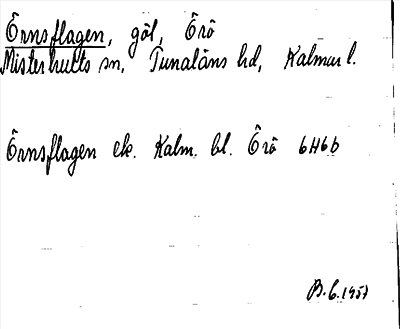 Örnsflagen, göl, Örö
Misterhults sn, Tunaläns hd, Kalmar l.
Örnsflagen ek. Kalm. bl. Örö 6H6b
B.G. 1957